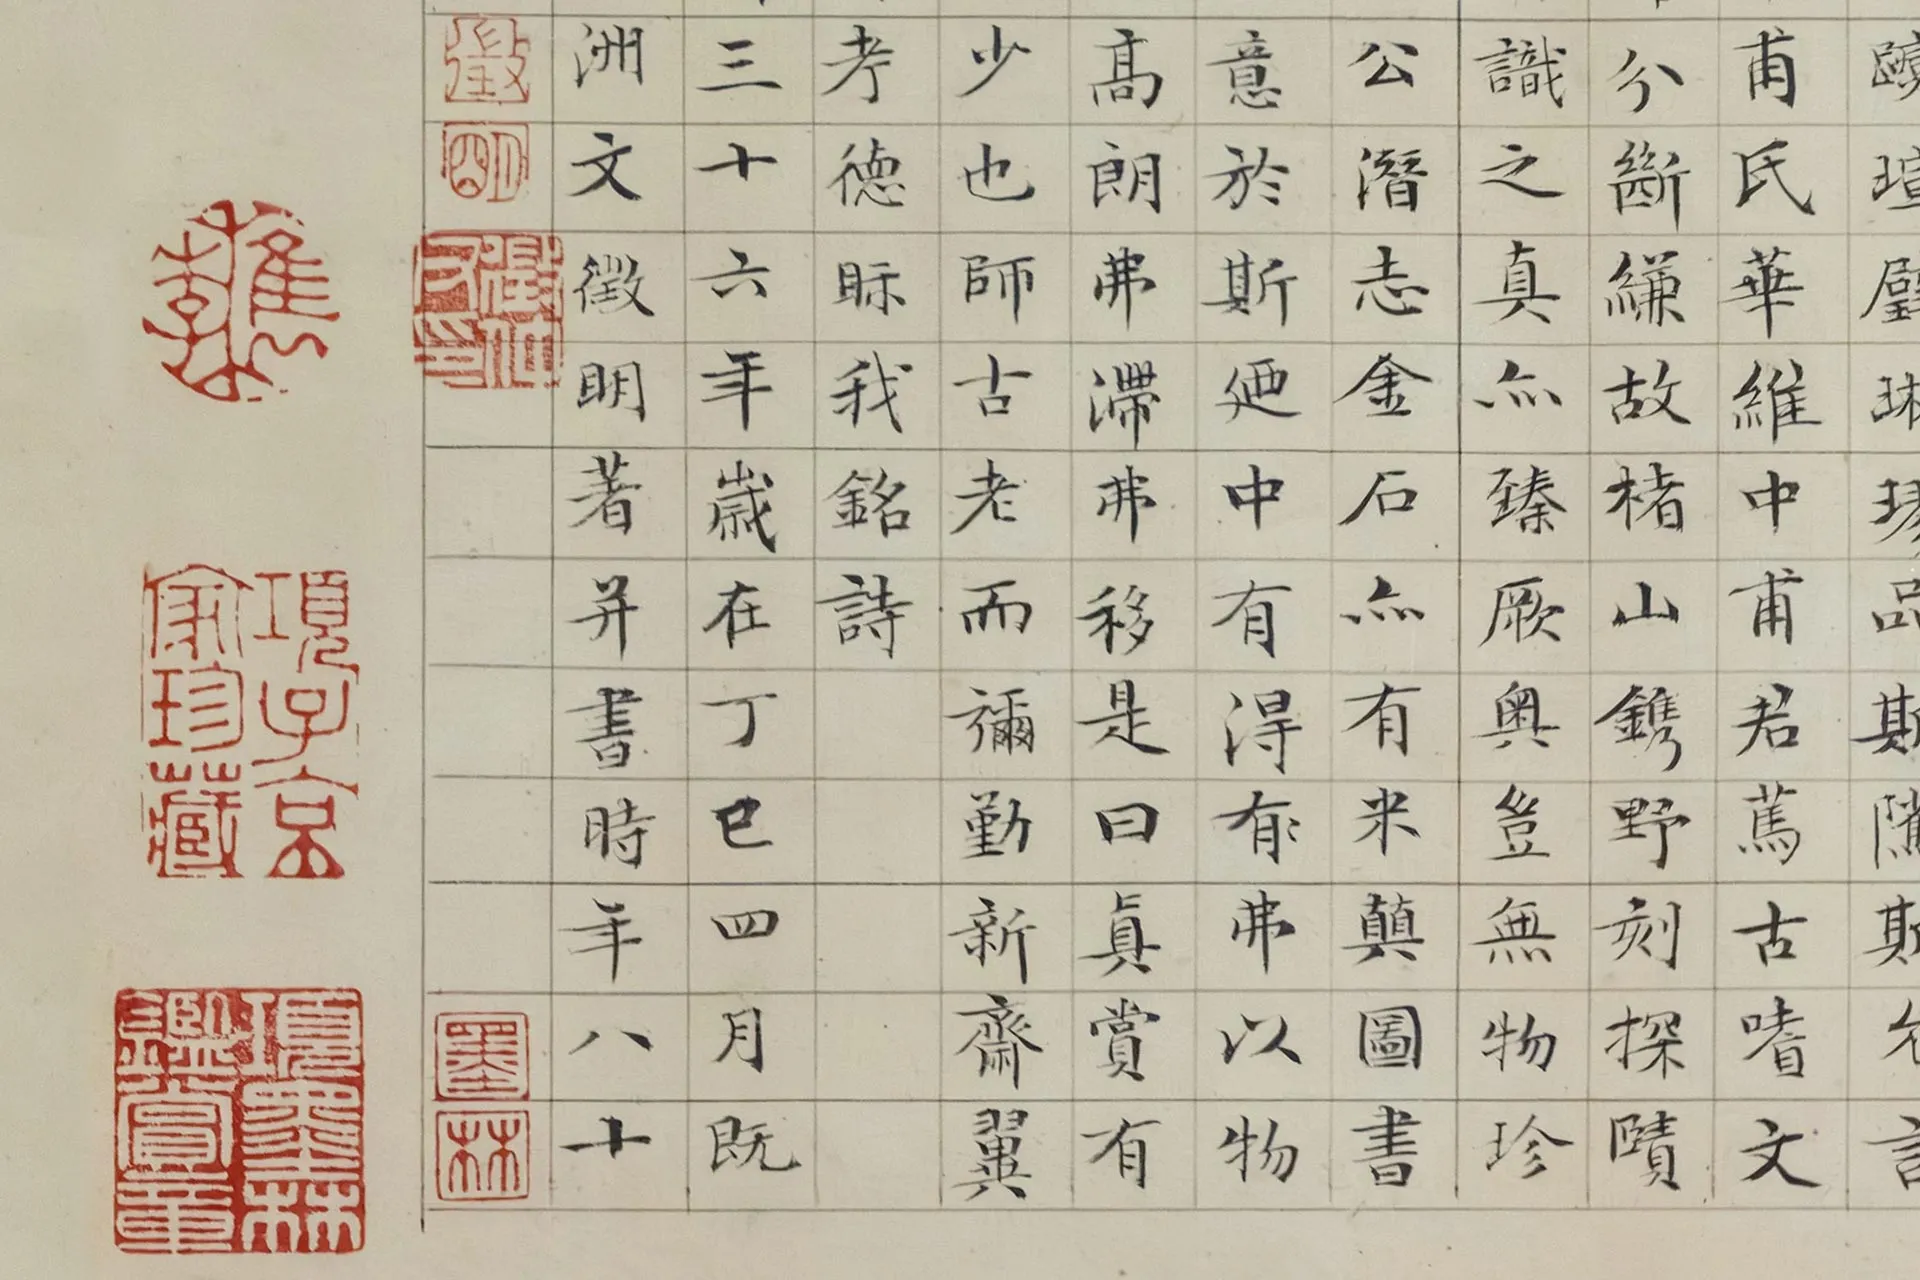 甫氏華維中甫君蔫古嗜文
兮斷縑故楮山鐫野刻探賾
識之真亦臻厥奧豈無物珍
公潛志金石亦有米顛圖書
意於斯廼中有得有弗以物
高朗弗滯弗移是曰真賞有
少也師古老而彌勤新齋翼
考德眎我銘詩
三十六年歲在丁巳四月既
洲文徵明著并書時年八十
徵
明
墨
林
項子京
家珍藏
項墨林
鑑賞章